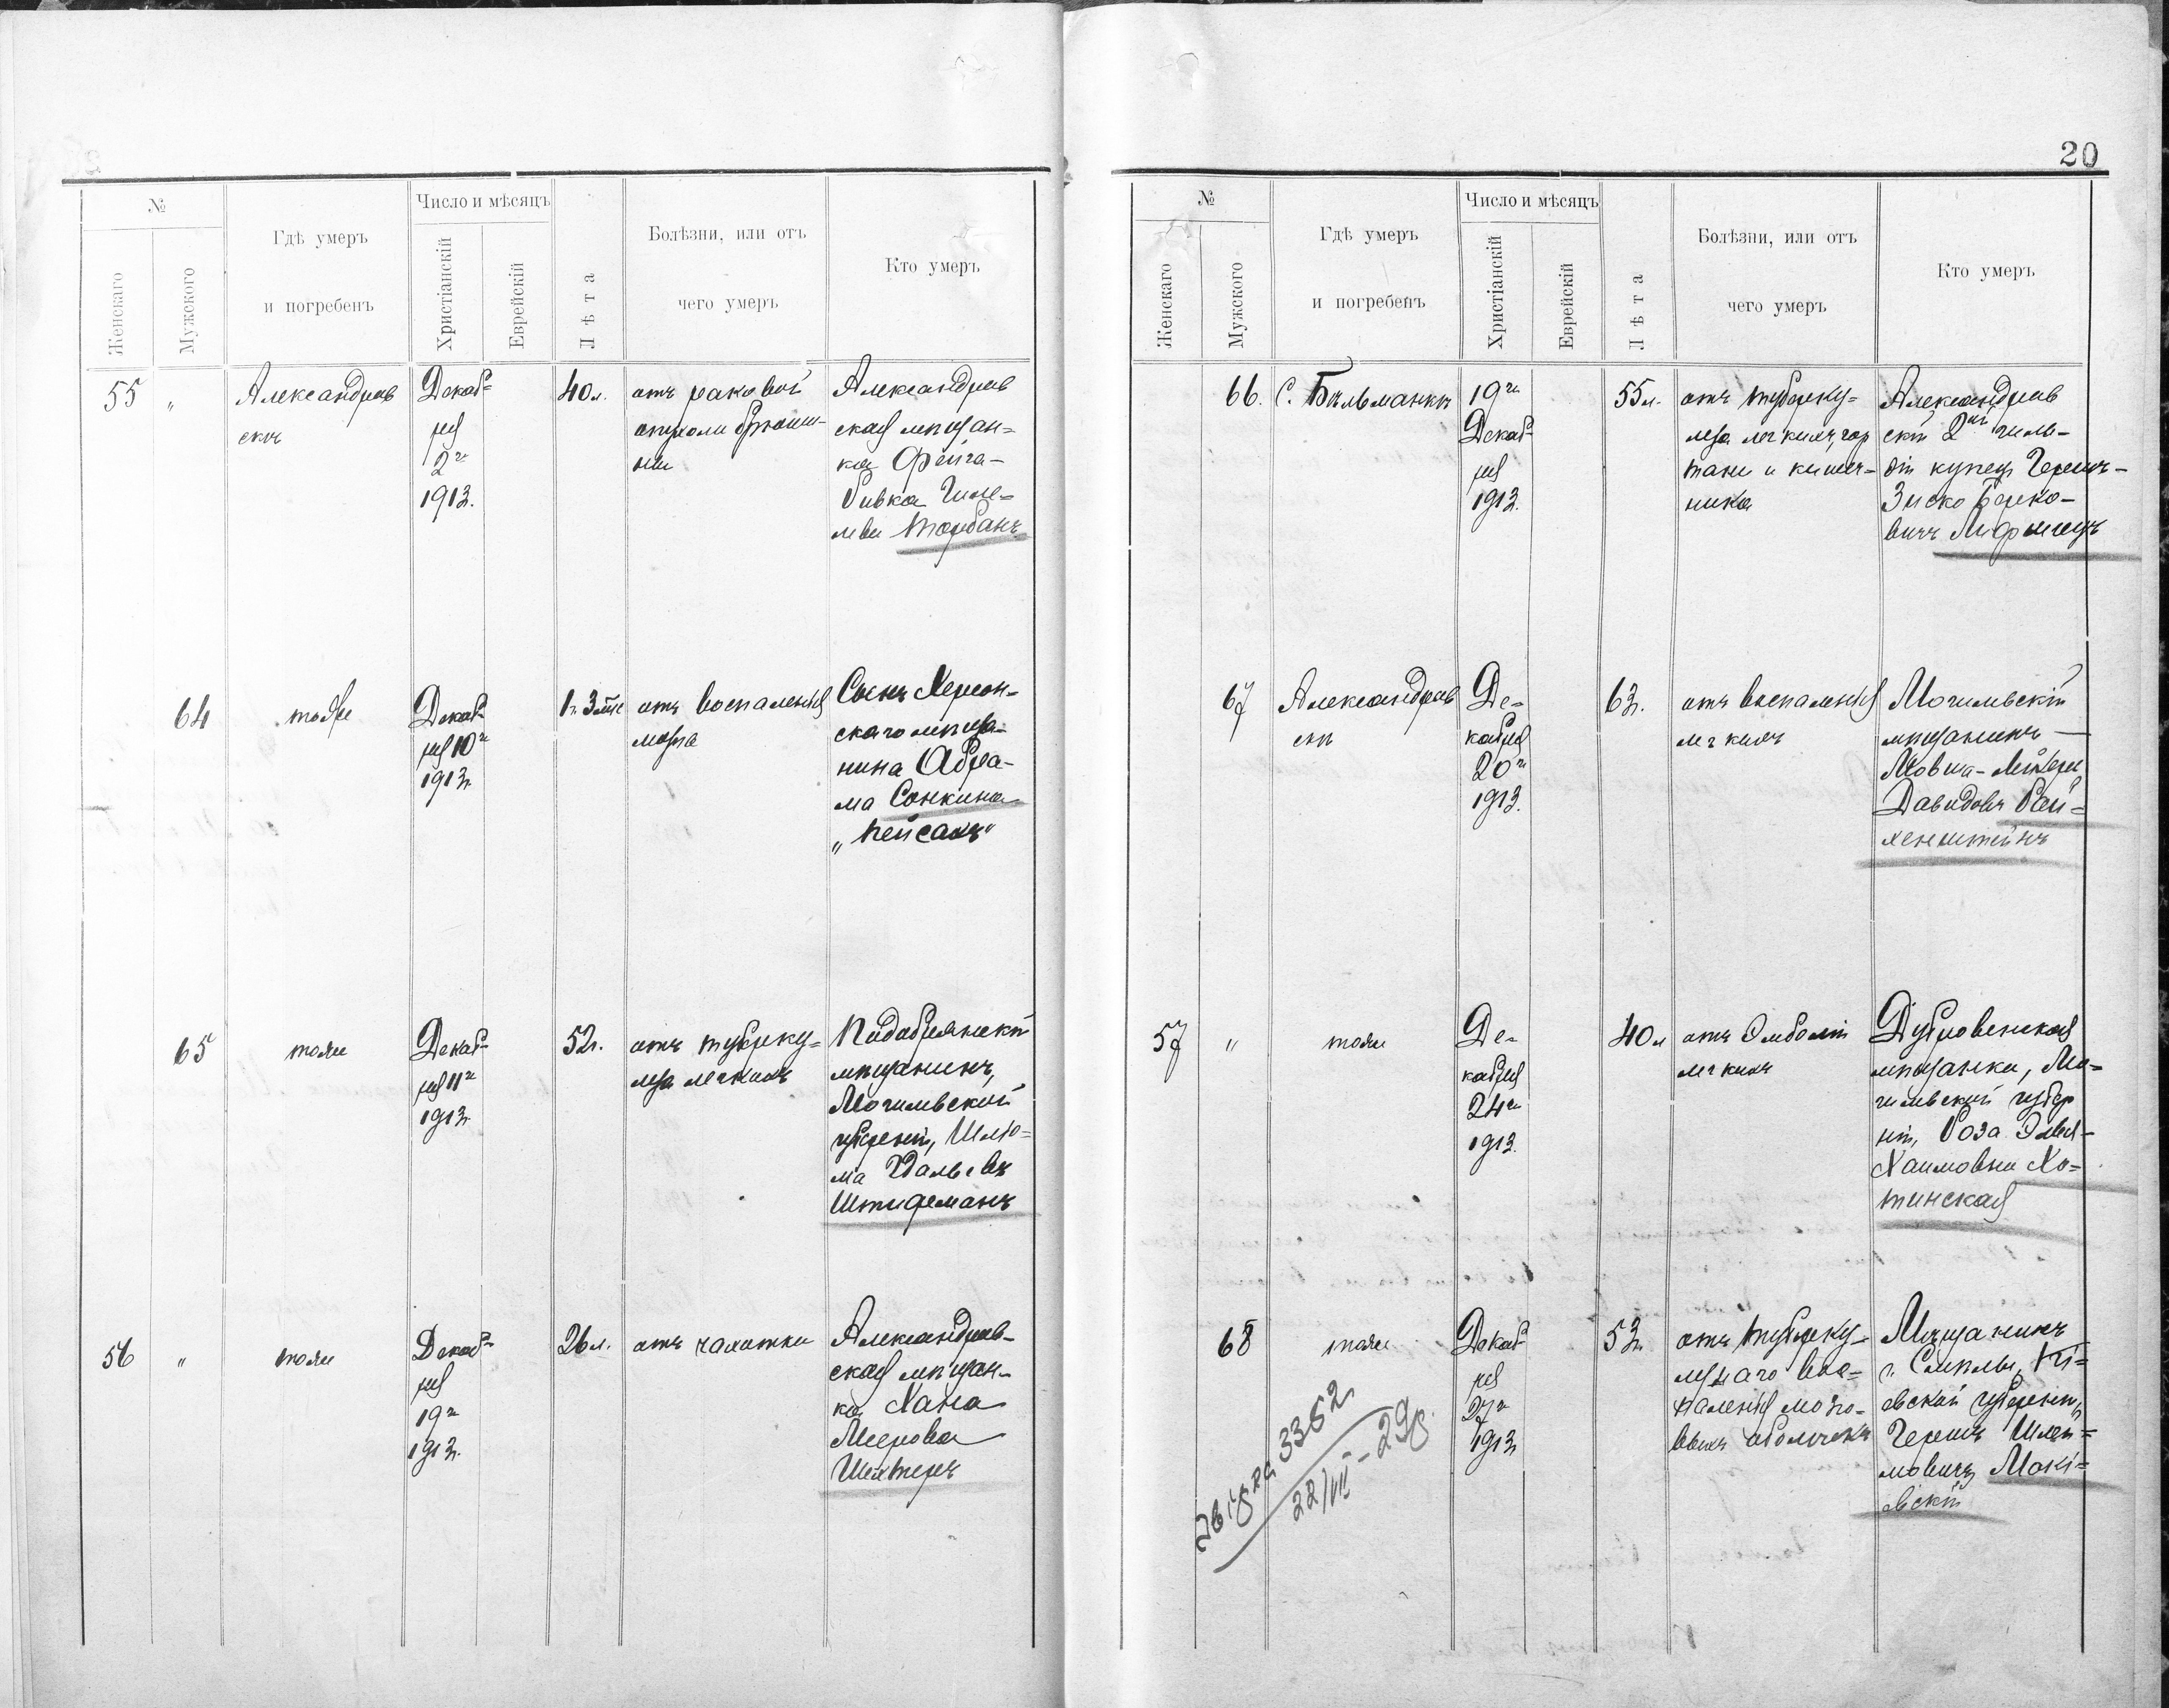 №
Число и мѣсяцъ
Гдѣ умеръ
и погребенъ
Женскаго
Мужскаго
Христіанскій
Еврейскій
Лѣта
Болѣзни, или отъ
чего умеръ
Кто умеръ
55 "
Александров
скъ
Декаб=
ря
2го
1913.
40 л.
отъ раковой
опухоли брюши-
ны
Александров
ская мѣщан=
ка Фейга-
Ривка
Торбанъ
64
тоже
Декаб
ря 10го
1913г.
отъ воспаленія
мозга
Сынъ Херсон-
скаго мѣща-
нина Абра-
ма Сонкина
„Пейсахъ"
65
тоже
Декаб-
ря 11го
1913г.
52г.
отъ туберку=
леза легкихъ
мѣщанинъ,
Могилевской
губерніи, Шліо=
ма
Штиферманъ
56 "
тоже
Декаб-
ря
19го
1913г.
26 л.
отъ чахотки
Александров-
ская мѣщан-
ка Хана
Меерова
Шехтеръ
20
№
Число и мѣсяцъ
Гдѣ умеръ
и погребенъ
Женскаго
Мужского
Христіанскій
Еврейскій
Лѣта
Болѣзни, или отъ
чего умеръ
Кто умеръ
66.
с. Бильманкъ
19го
Декаб-
ря
1913.
55 л.
отъ туберку=
леза легкихъ, гор
тани и кишеч-
ника
Александров
скій 2ой гиль-
діи купецъ Гершъ-
Зиско Берко-
вичъ
67
Александров
скъ
Де-
кабря
20го
1913.
63г.
отъ воспаленія
легкихъ
Могилевскій
мѣщанинъ
Мовша-Лейзеръ
Давидовъ Рай=
хенштейнъ
57 "
тоже
Де-
кабря
24го
1913.
40 л
отъ Эмболіи
легкихъ
Дубровенская
мѣщанка, Мо=
гилевской губер
ніи, Роза Элья-
Хаимовна Хо=
тинская
68
тоже
Декаб
ря
27го
1913г
53г.
отъ туберку-
лезнаго вос=
паленія мозго-
выхъ оболочекъ
Мѣщанинъ
г. Смѣлы, Кі=
евской губерніи,
Гершъ Шлем=
мовичъ Макі=
евскій
Звірка 3352
22/VII-29р.